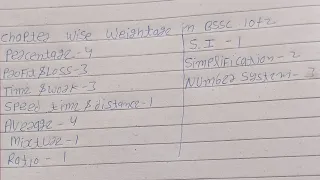 chapter wise weightage in BSSC 10+2
Percentage - 4
Profit & Loss - 3
Time & Work - 3
Speed time & distance - 1
Average - 4
Mixture - 1
Ratio - 1
S.I - 1
Simplification - 2
Number System - 3